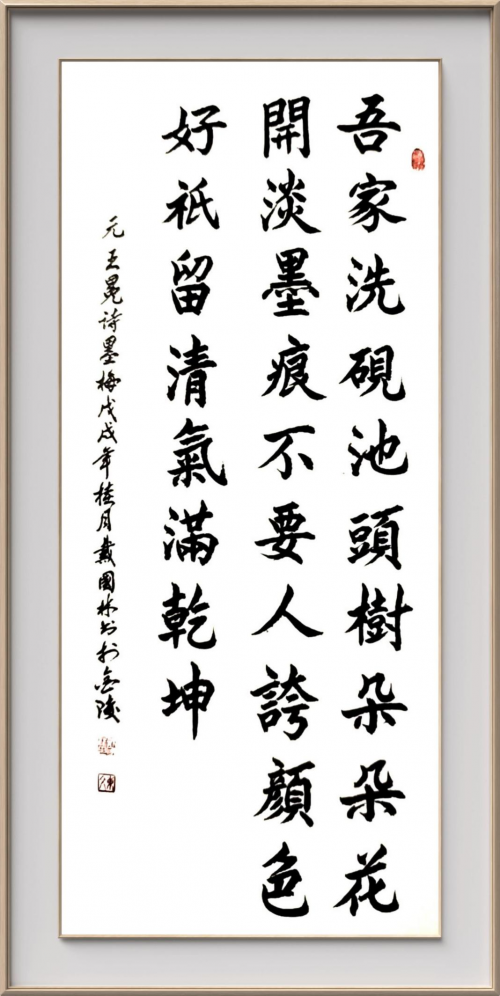 吾家洗硯池頭樹朵朵花
開淡墨痕不要人誇顏色
好祇留清氣滿乾坤
元王冕诗墨梅戊戌年桂月戴國林书於金陵